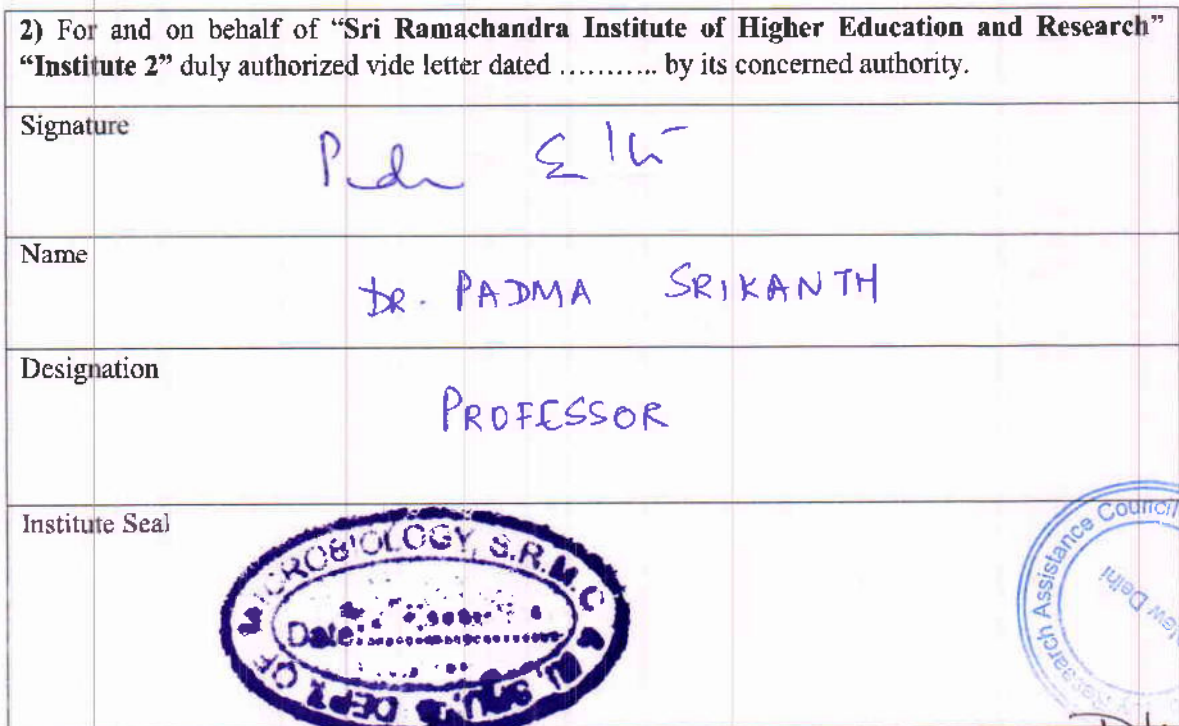 2) For and on behalf of “Sri Ramachandra Institute of Higher Education and Research”
“Institute 2” duly authorized vide letter dated ........... by its concerned authority.
Signature
Name
DR. PADMA SRIKANTH
Designation
PROFESSOR
Institute Seal
DEPT. OF MICROBIOLOGY, S.R.M.C
Date:
Research Assistance Council
New Delhi